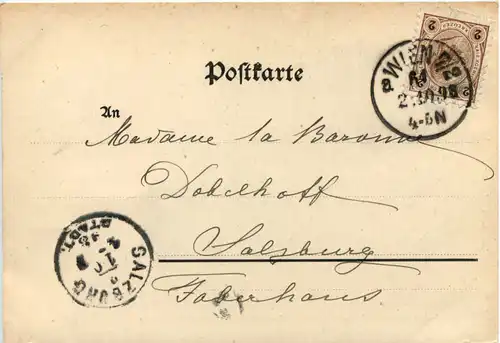 Postkarte
An
Madame la Baronne
Dobelhoff
Salzburg
Faberhaus
WIEN
2.10.98
4-5N
SALZBURG
STADT.
2
2